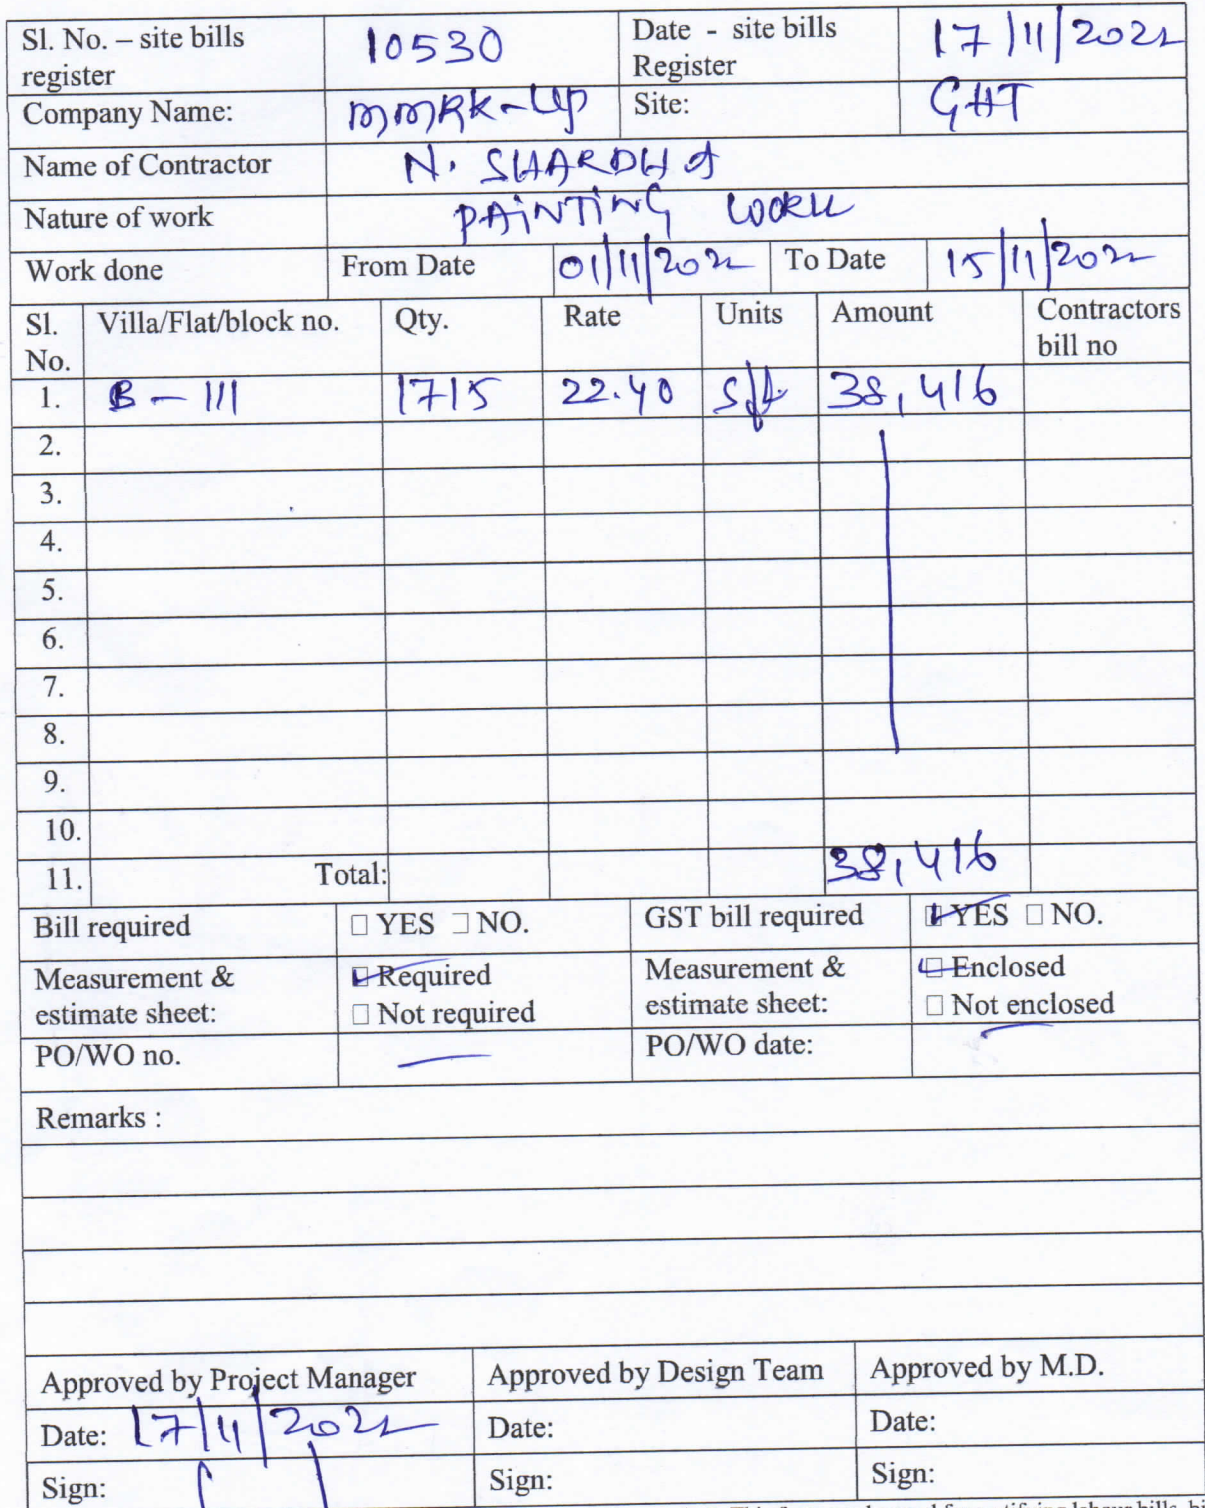 Sl. No. – site bills register 10530 Date - site bills Register 17/11/2022
Company Name: MMRK-LLP Site: GHT
Name of Contractor N. SHARDHA
Nature of work PAiNTiNG WORK
Work done From Date 01/11/2022 To Date 15/11/2022
Sl. No. Villa/Flat/block no. Qty. Rate Units Amount Contractors bill no
1. B – 111 1715 22.40 sft 38,416
2.
3.
4.
5.
6.
7.
8.
9.
10.
11. Total: 38,416
Bill required □ YES □ NO. GST bill required ☑ YES □ NO.
Measurement & estimate sheet: ☑ Required □ Not required Measurement & estimate sheet: ☑ Enclosed □ Not enclosed
PO/WO no. — PO/WO date: —
Remarks :
Approved by Project Manager Approved by Design Team Approved by M.D.
Date: 17/11/2022 Date: Date:
Sign: Sign: Sign: